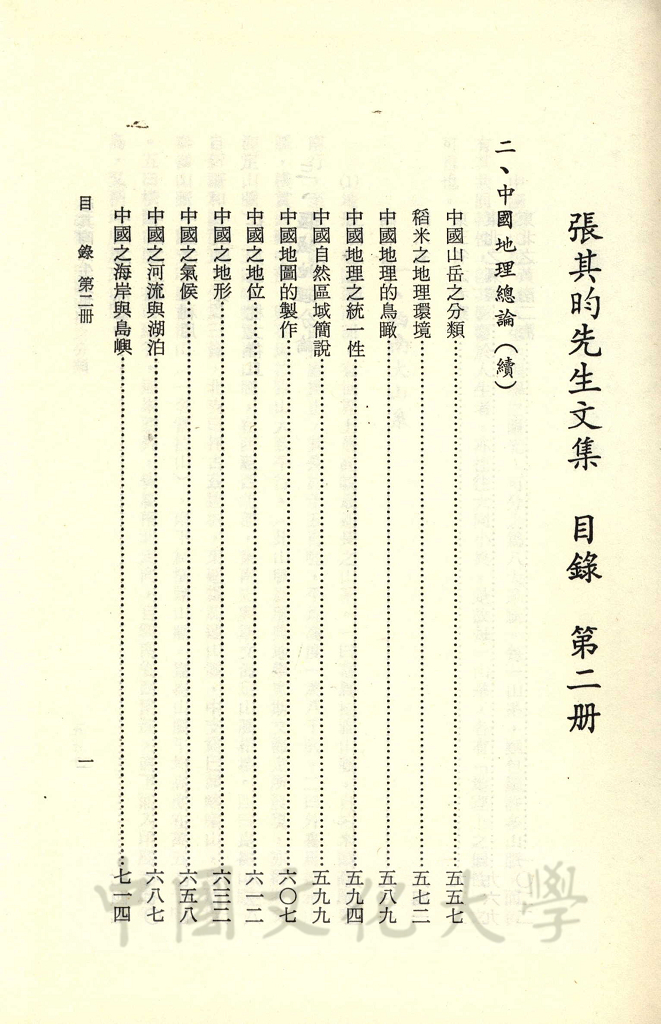 張其昀先生文集　目錄　第二册
二、中國地理總論（續）
中國山岳之分類……五五七
稻米之地理環境……五七二
中國地理的鳥瞰……五八九
中國地理之統一性……五九四
中國自然區域簡說……五九九
中國地圖的製作……六〇七
中國之地位……六一二
中國之地形……六三二
中國之氣候……六五八
中國之河流與湖泊……六八七
中國之海岸與島嶼……七一四
目錄　第二册
一
中國文化大學